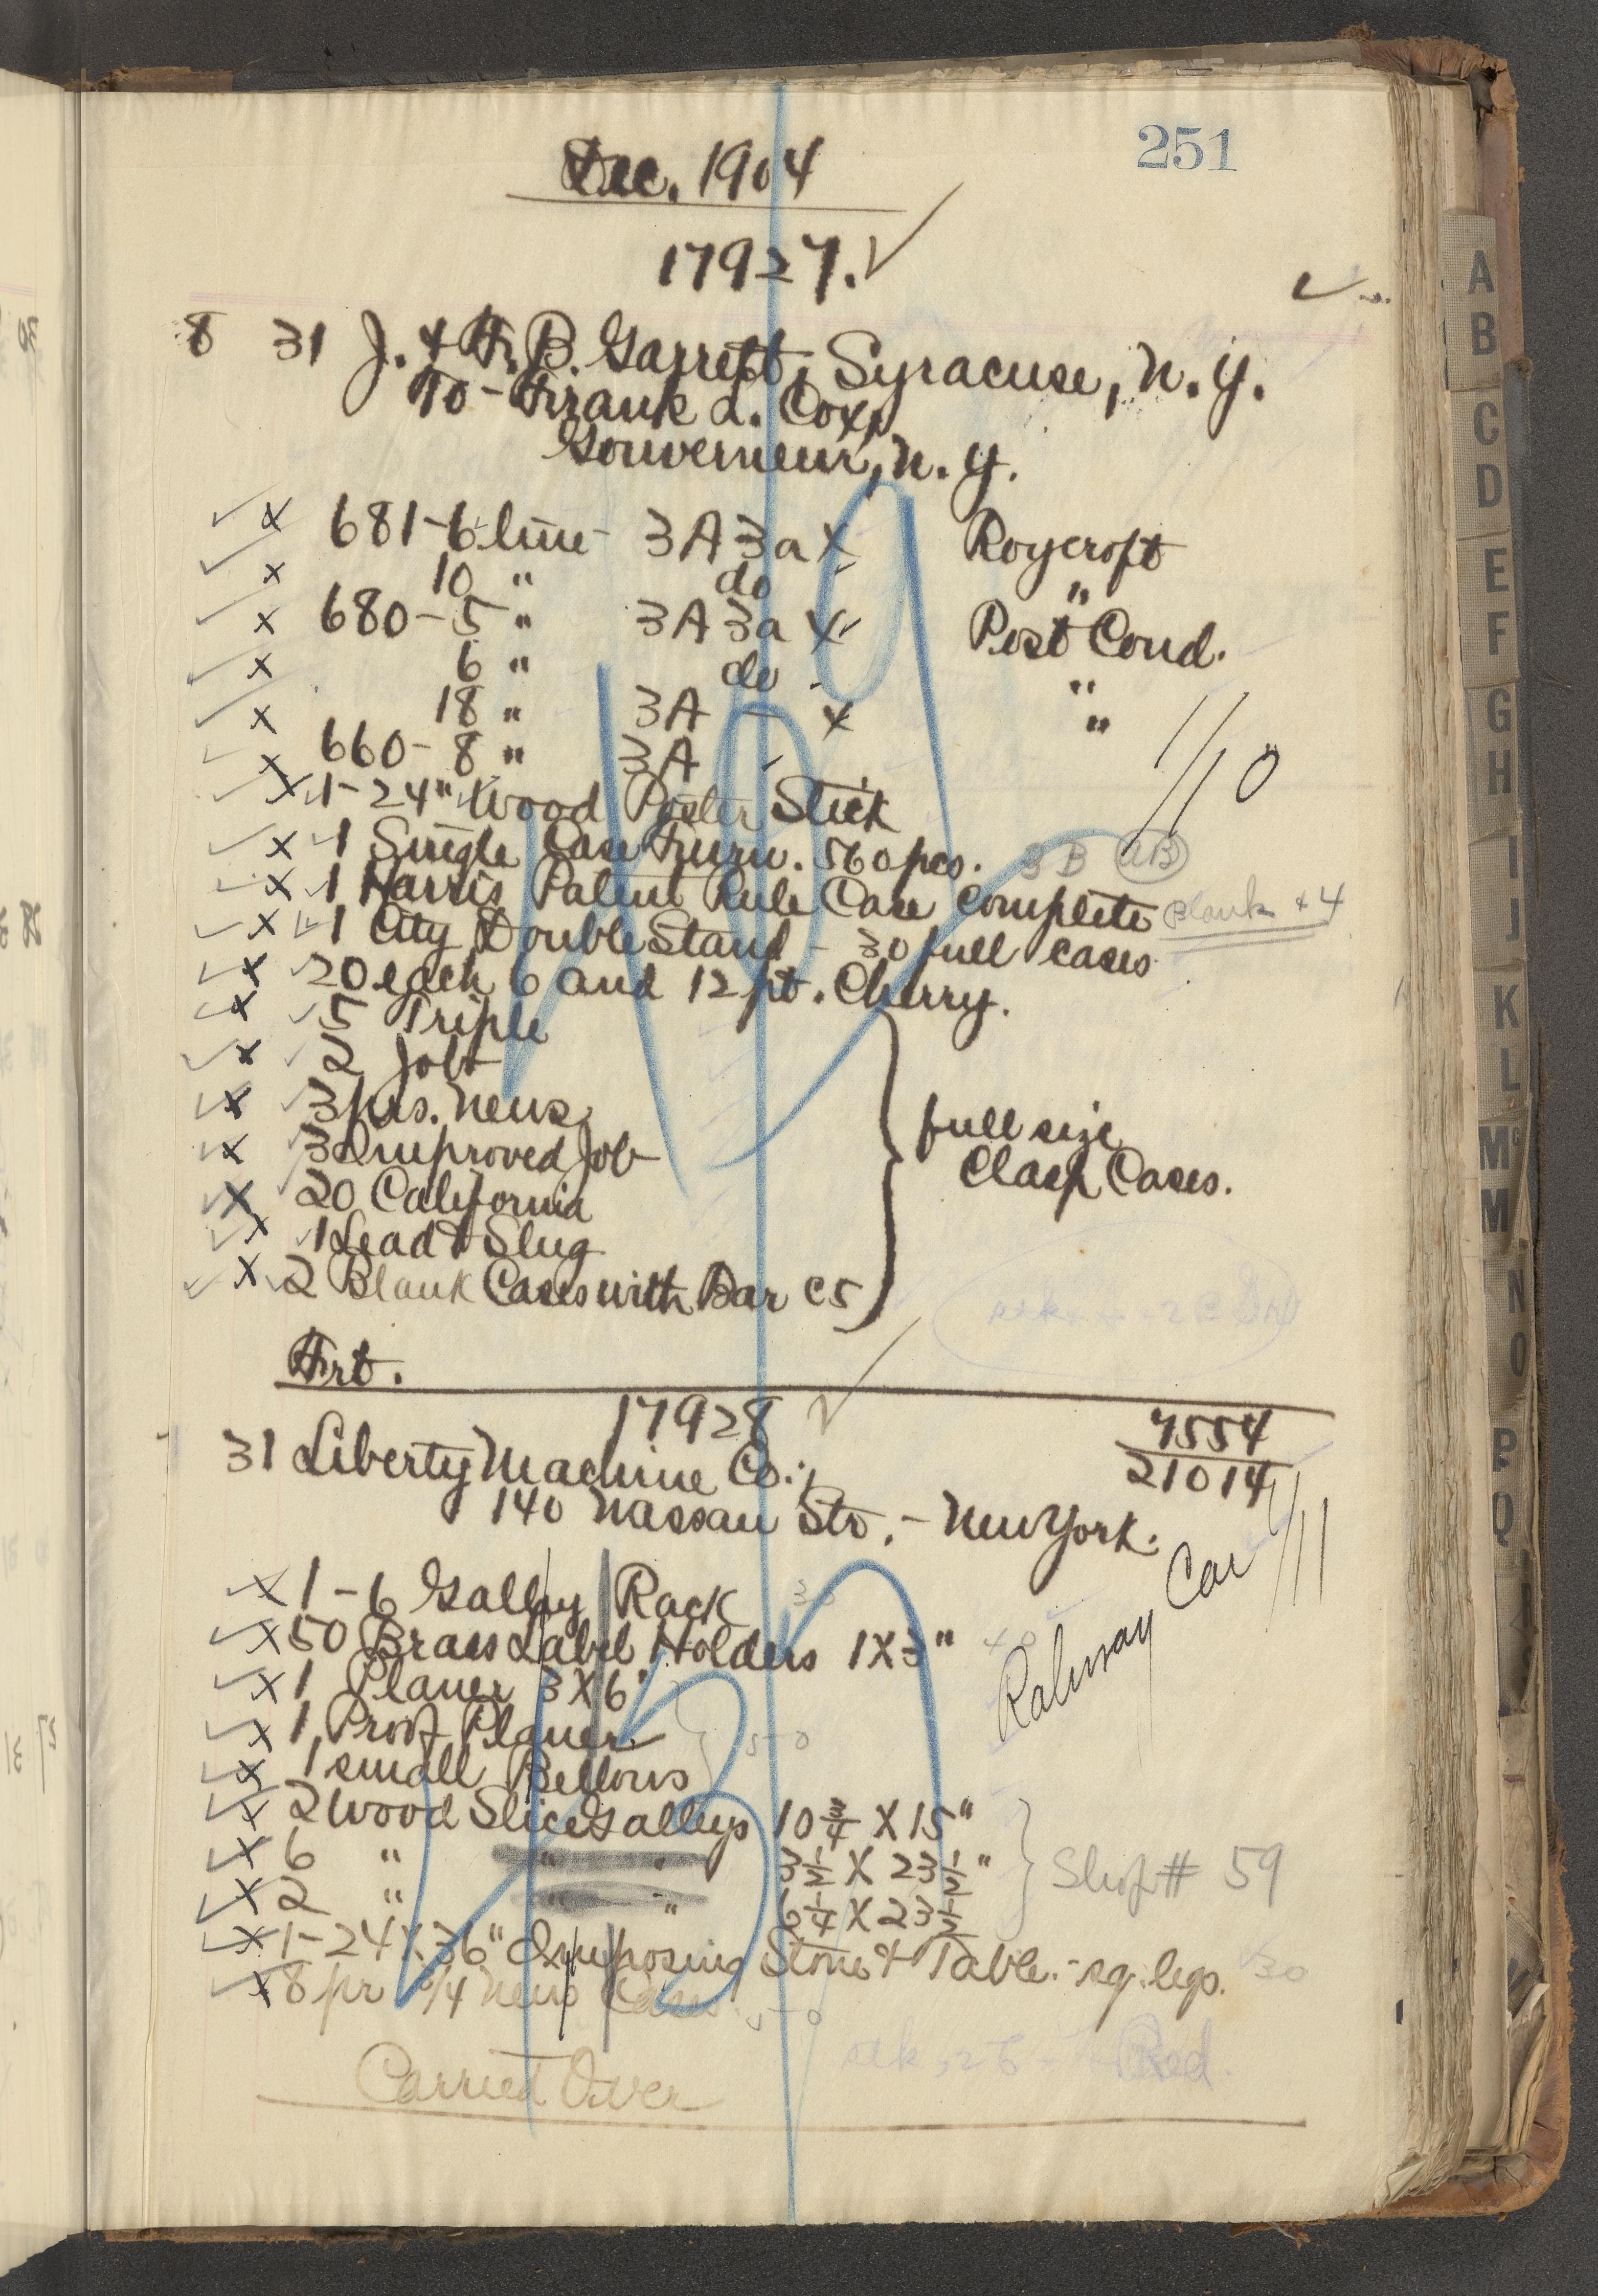 251
Dec. 1904
17927.
8 31 J. & F. B. Garrett, Syracuse, N. Y.
To - Frank L. Cox,
Gouverneur, N. Y.
681-6 line - 3A 3a x Roycroft
10 " do "
680-5 " 3A 3a x Post Cond.
6 " do "
18 " 3A - x "
660-8 " 3A
1/10
1-24" Wood Poster Stick
1 Single Case Furn. 560 pcs. 3B
1 Harris Patent Rule Case complete blank + 4
1 City Double Stand - 30 full cases
20 each 6 and 12 pt. Cherry.
5 Triple
2 Job
3 prs. News
3 Improved Job
20 California
1 Lead & Slug
2 Blank Cases with Bar C5
full size
Clasp Cases.
Frt.
17928
7554
21014
31 Liberty Machine Co.,
140 Nassau Str. - New York.
Rahway Car 1/11
1-6 Galley Rack
50 Brass Label Holders 1x3" 40
1 Planer 3x6"
1 Proof Planer
1 small Bellows
50
2 Wood Slice Galleys 10 3/4 x 15"
6 " " " 3 1/2 x 23 1/2"
2 " " " 6 1/4 x 23 1/2
Shop # 59
1-24x36" Imposing Stone & Table - sq. legs. 30
8 pr 3/4 News Cases
Carried Over
A
B
C
D
E
F
G
H
I
J
K
L
Mc
M
N
O
P
Q